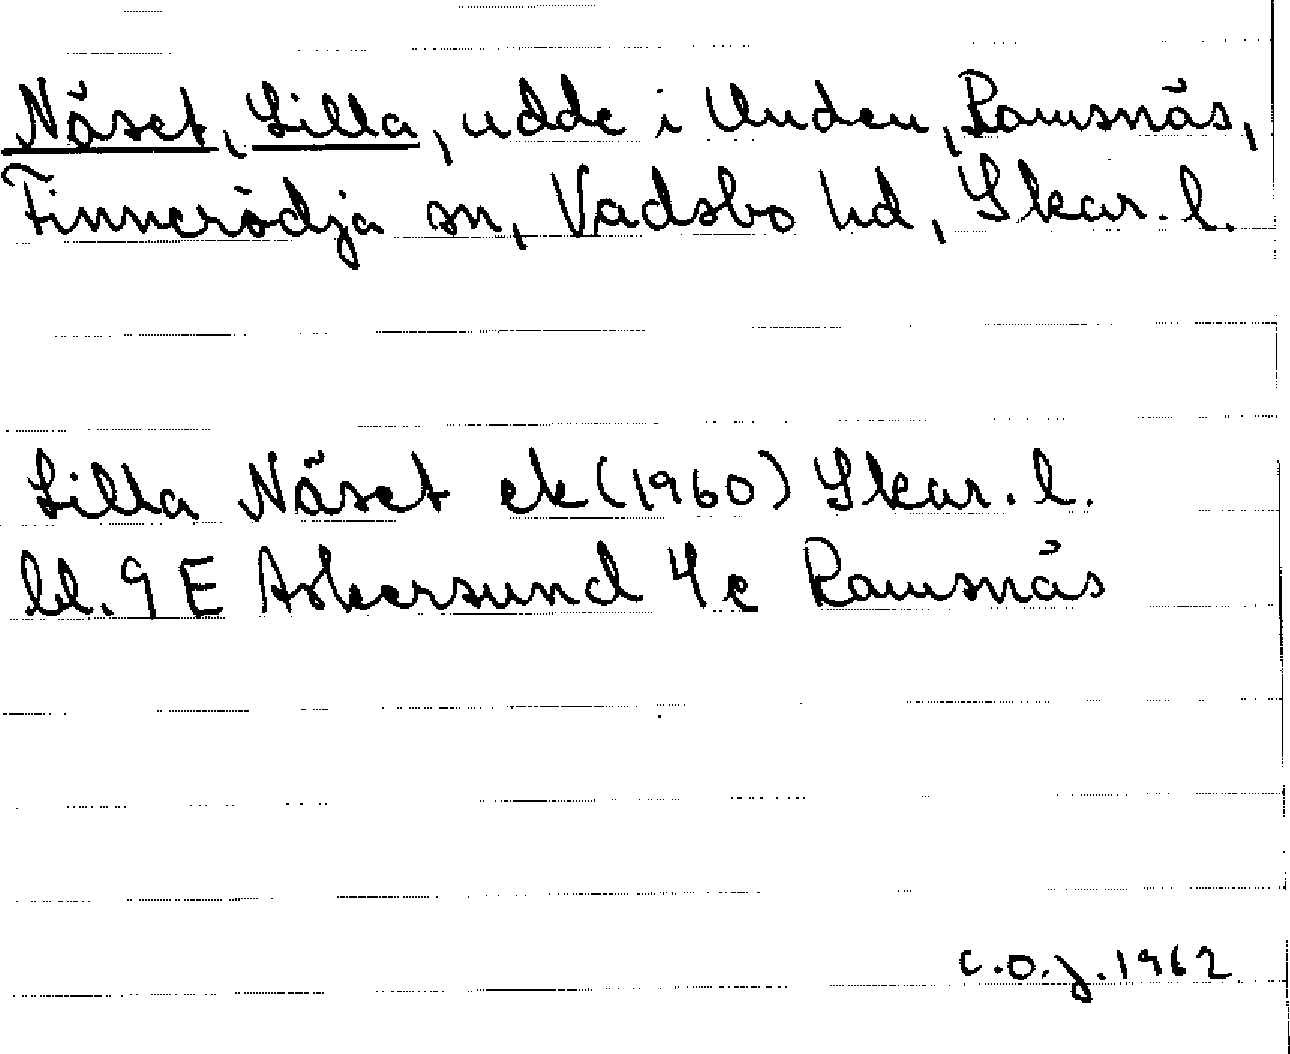 Näset, Lilla, udde i Unden, Ramsnäs,
Finnerödja sn, Vadsbo hd, Skar. l.
Lilla Näset ek (1960) Skar. l.
bl. 9 E Askersund 4 c Ramsnäs
C.O.J. 1962